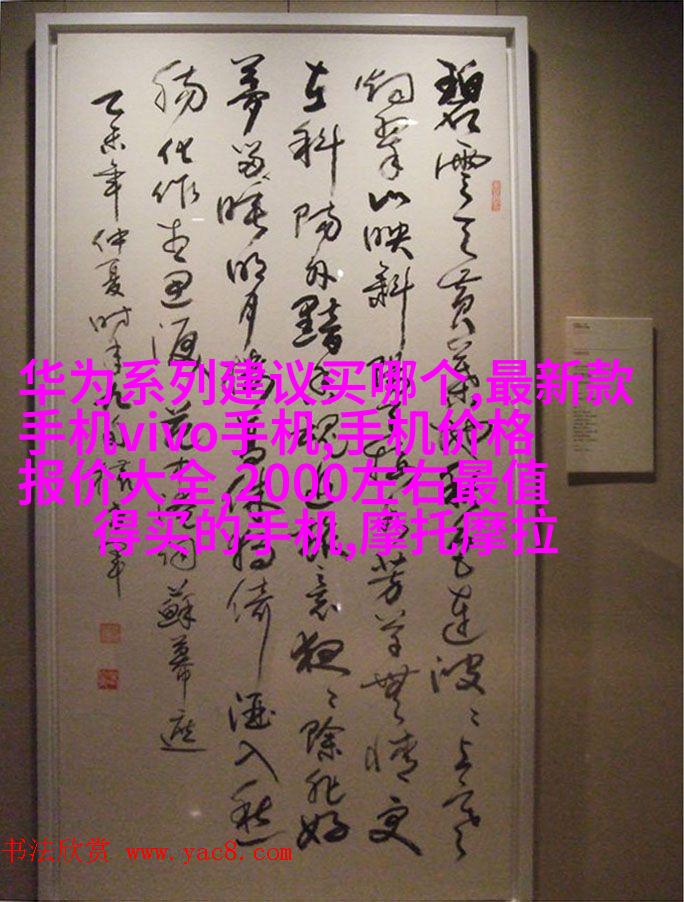 碧雲天黄葉地秋色連波〻上寒
烟翠山映斜陽天接水芳草無情更
在斜陽外黯鄉魂追旅思夜〻除非好
夢留睡明月樓高休獨倚酒入愁
腸化作相思淚范仲淹詞蘇幕遮
乙未年仲夏时年
华为系列建议买哪个,最新款
手机vivo手机,手机价格
报价大全,2000左右最值
得买的手机,摩托摩拉
书法欣赏 www.yac8.com